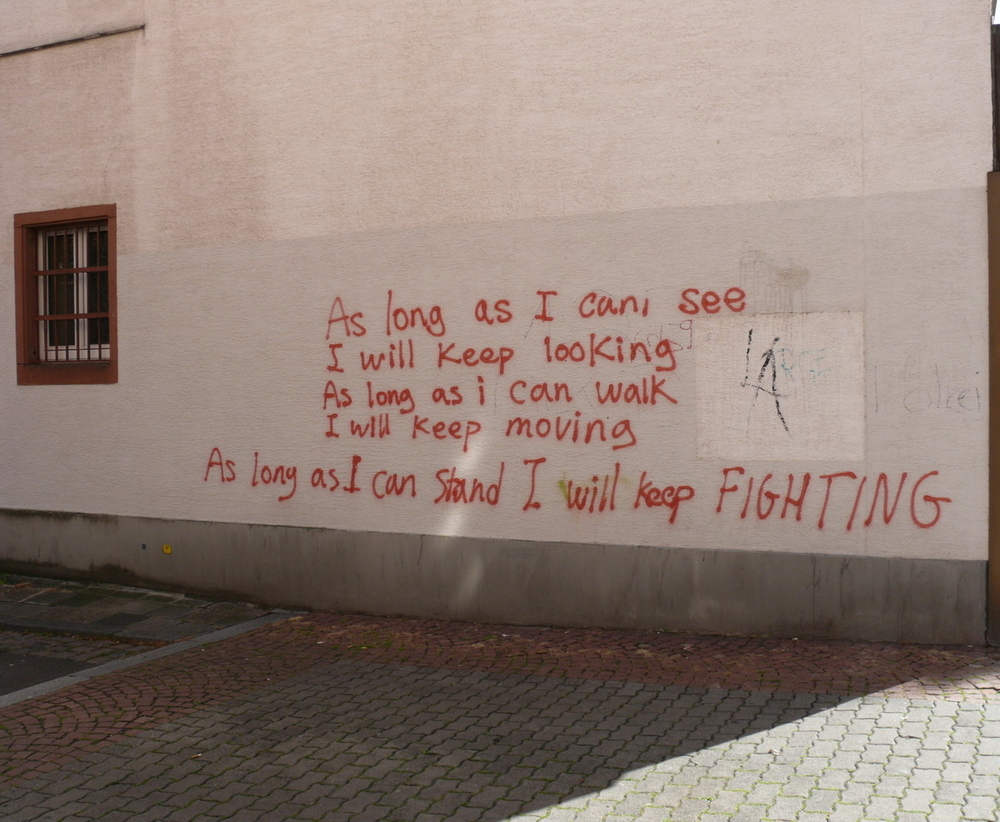 As long as I can see
I will keep looking
As long as i can walk
I will keep moving
As long as I can stand I will keep FIGHTING